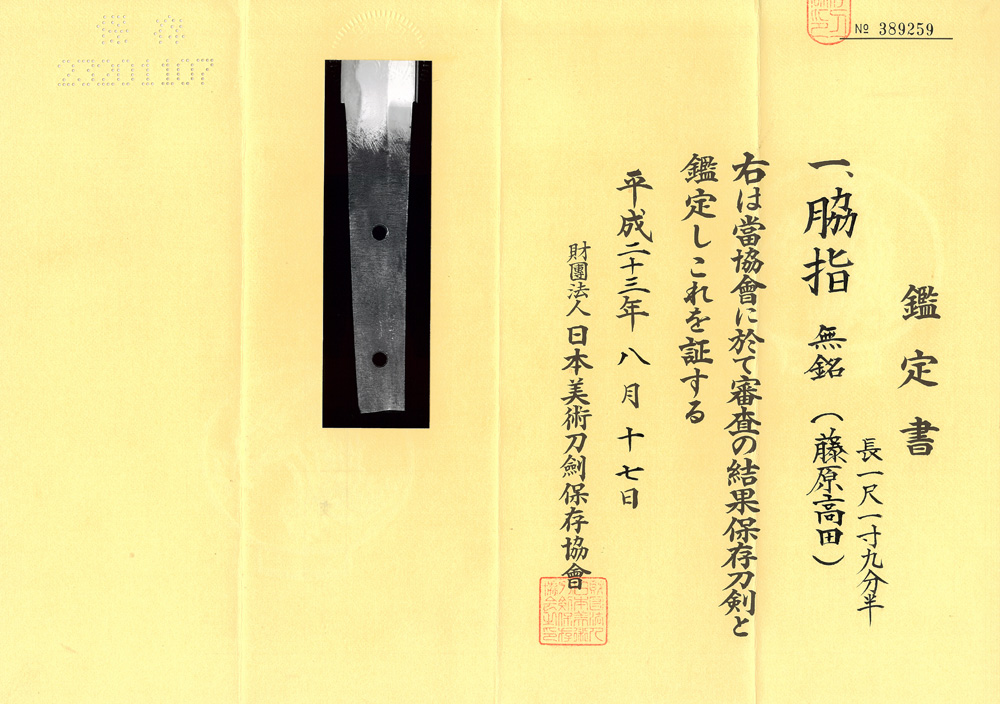 № 389259
鑑定書
一、脇指 無銘 (藤原高田)
長一尺一寸九分半
右は當協會に於て審査の結果保存刀剣と
鑑定しこれを証する
平成二十三年八月十七日
財團法人 日本美術刀劍保存協會
保存
23201107